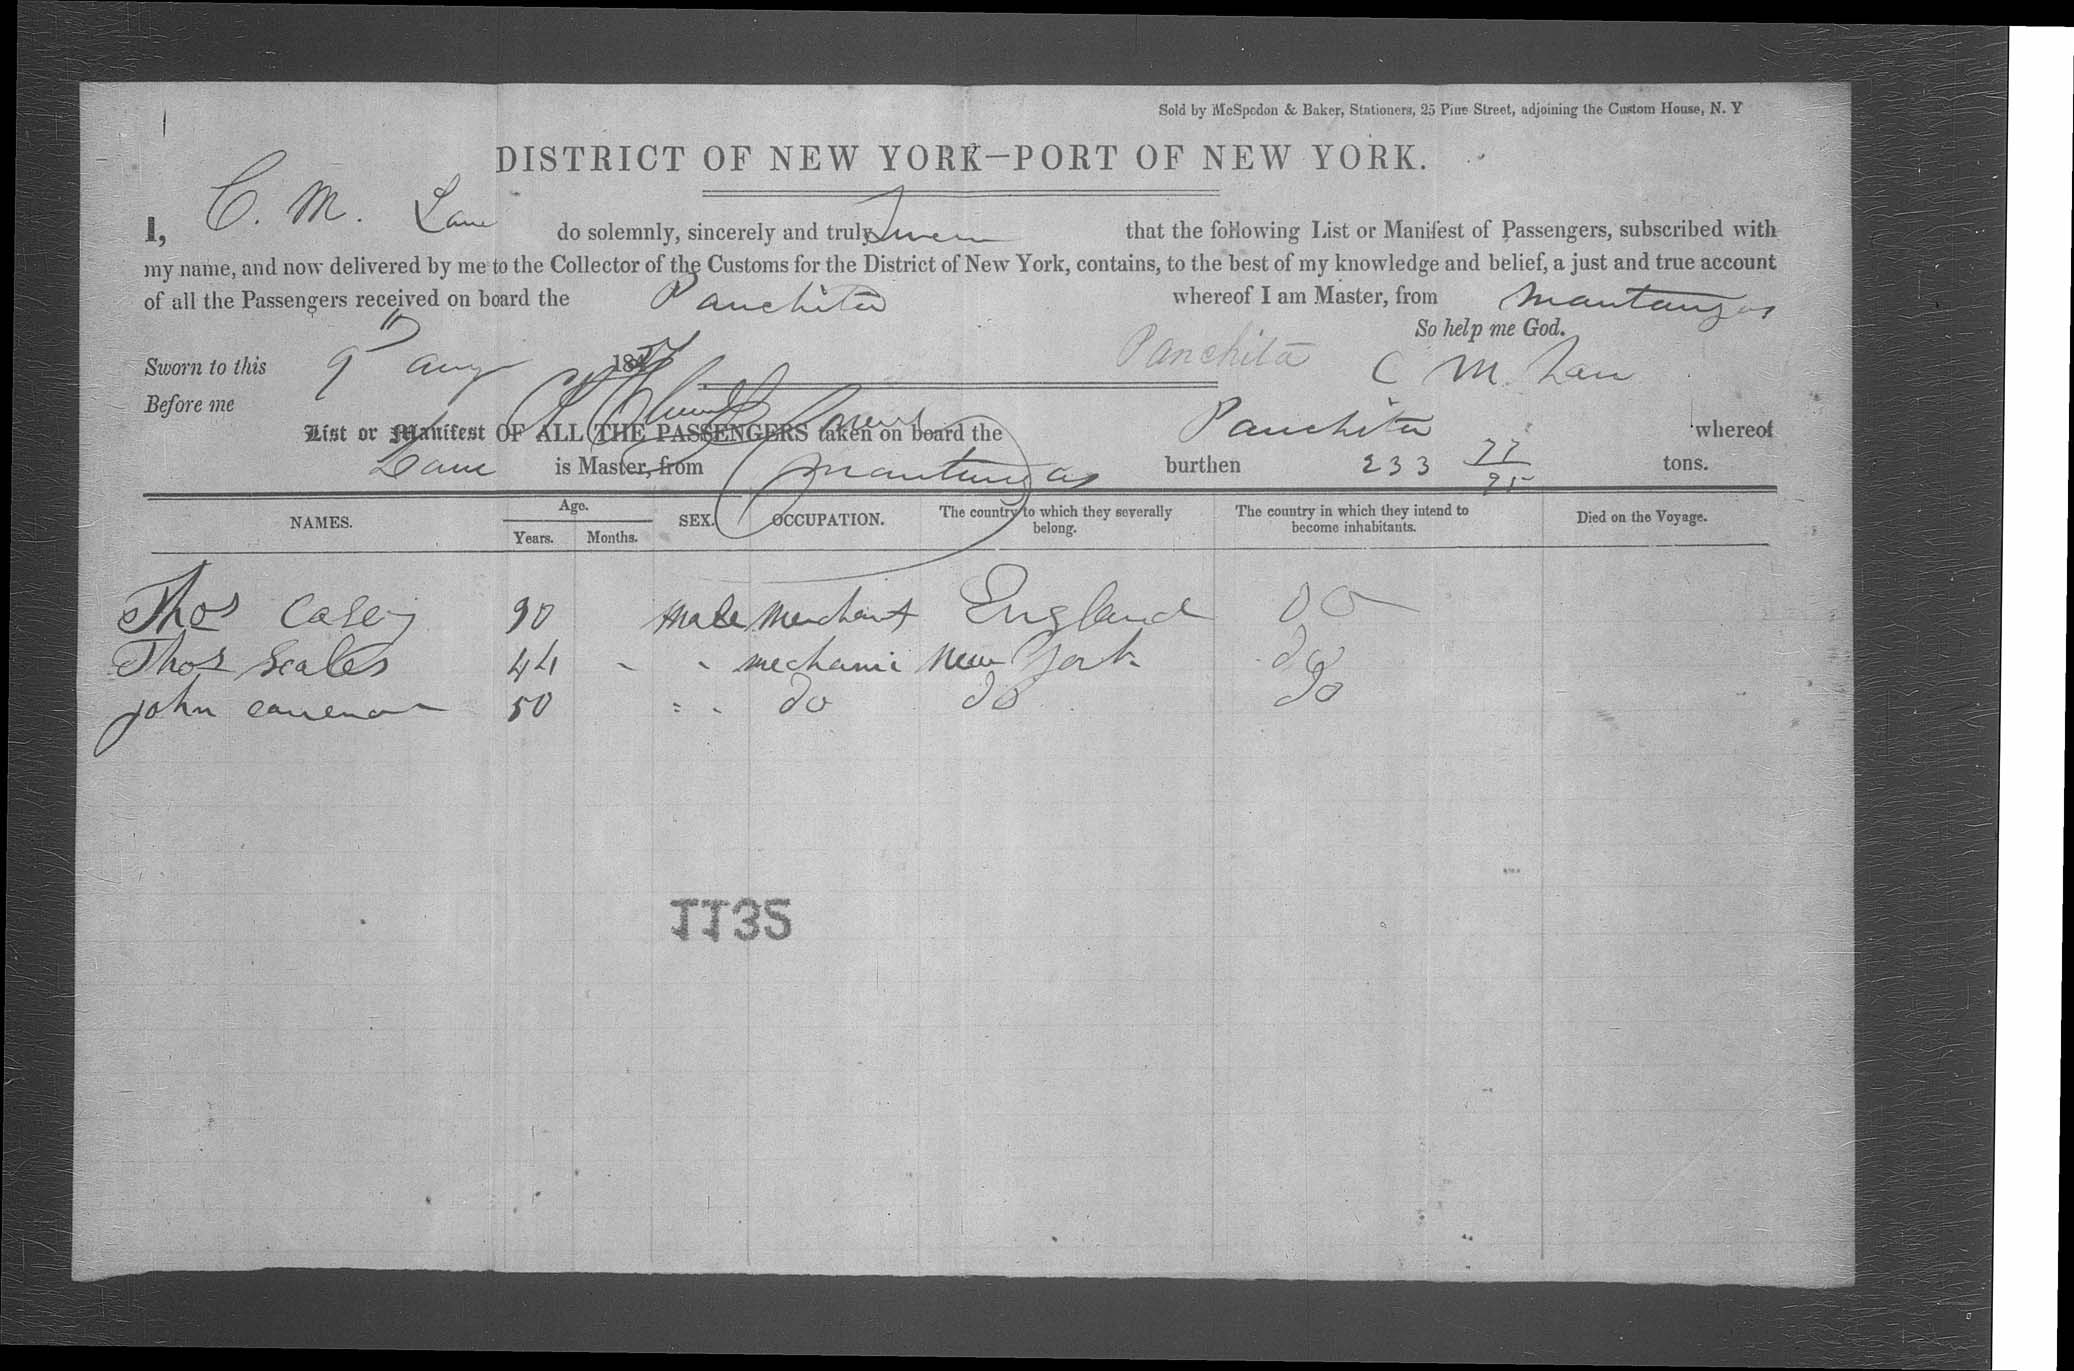 Sold by McSpedon & Baker, Stationers, 25 Pine Street, adjoining the Custom House, N. Y
DISTRICT OF NEW YORK—PORT OF NEW YORK.
I, C. M. Lane do solemnly, sincerely and truly swear that the following List or Manifest of Passengers, subscribed with
my name, and now delivered by me to the Collector of the Customs for the District of New York, contains, to the best of my knowledge and belief, a just and true account
of all the Passengers received on board the Panchita whereof I am Master, from Mantanzas
So help me God.
Sworn to this 9th Aug 185 Panchita C M Lane
Before me
List or Manifest OF ALL THE PASSENGERS taken on board the Panchita whereof
Lane is Master, from Mantanzas burthen 233 77/95 tons.
NAMES. Age. Years. Months. SEX. OCCUPATION. The country to which they severally belong. The country in which they intend to become inhabitants. Died on the Voyage.
Thos Casey 30 male Merchant England do
Thos Scales 44 " " mechanic New York do
john 50 " " do do do
1135